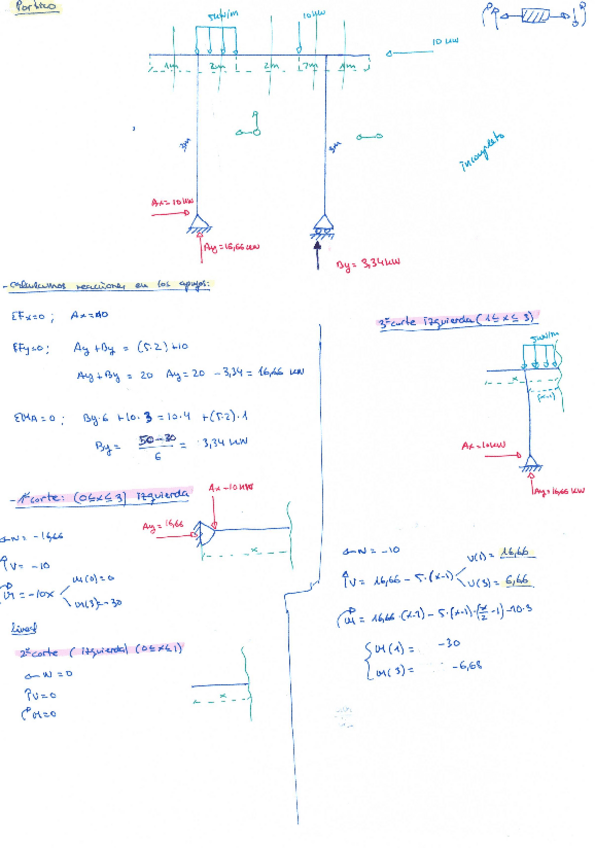 Portico
5kN/m
10kN
10 kN
1m
2m
2m
2m
1m
3m
3m
incompleto
Ax=10kN
Ay=16,66kN
By=3,34kN
- Calculamos reacciones en los apoyos:
ΣFx=0; Ax=10
ΣFy=0; Ay+By = (5·2)+10
Ay+By = 20 Ay=20 -3,34=16,66 kN
ΣMA=0; By·6 +10·3=10·4 +(5·2)·1
By= 50-30/6 = 3,34 kN
- 1ºcorte: (0≤x≤3) izquierda
Ax=10kN
Ay=16,66
x
N= -16,66
V= -10
M=-10x
M(0)=0
M(3)=-30
2ºcorte (izquierda) (0≤x≤1)
N=0
V=0
M=0
x
3ºcorte izquierda (1≤x≤3)
5kN/m
x
(x-1)
Ax=10kN
Ay=16,66 kN
N= -10
V= 16,66 - 5·(x-1)
V(1)= 16,66
V(3)= 6,66
M= 16,66·(x-1) - 5·(x-1)·(x/2 -1)-10·3
M(1)= -30
M(3)= -6,68